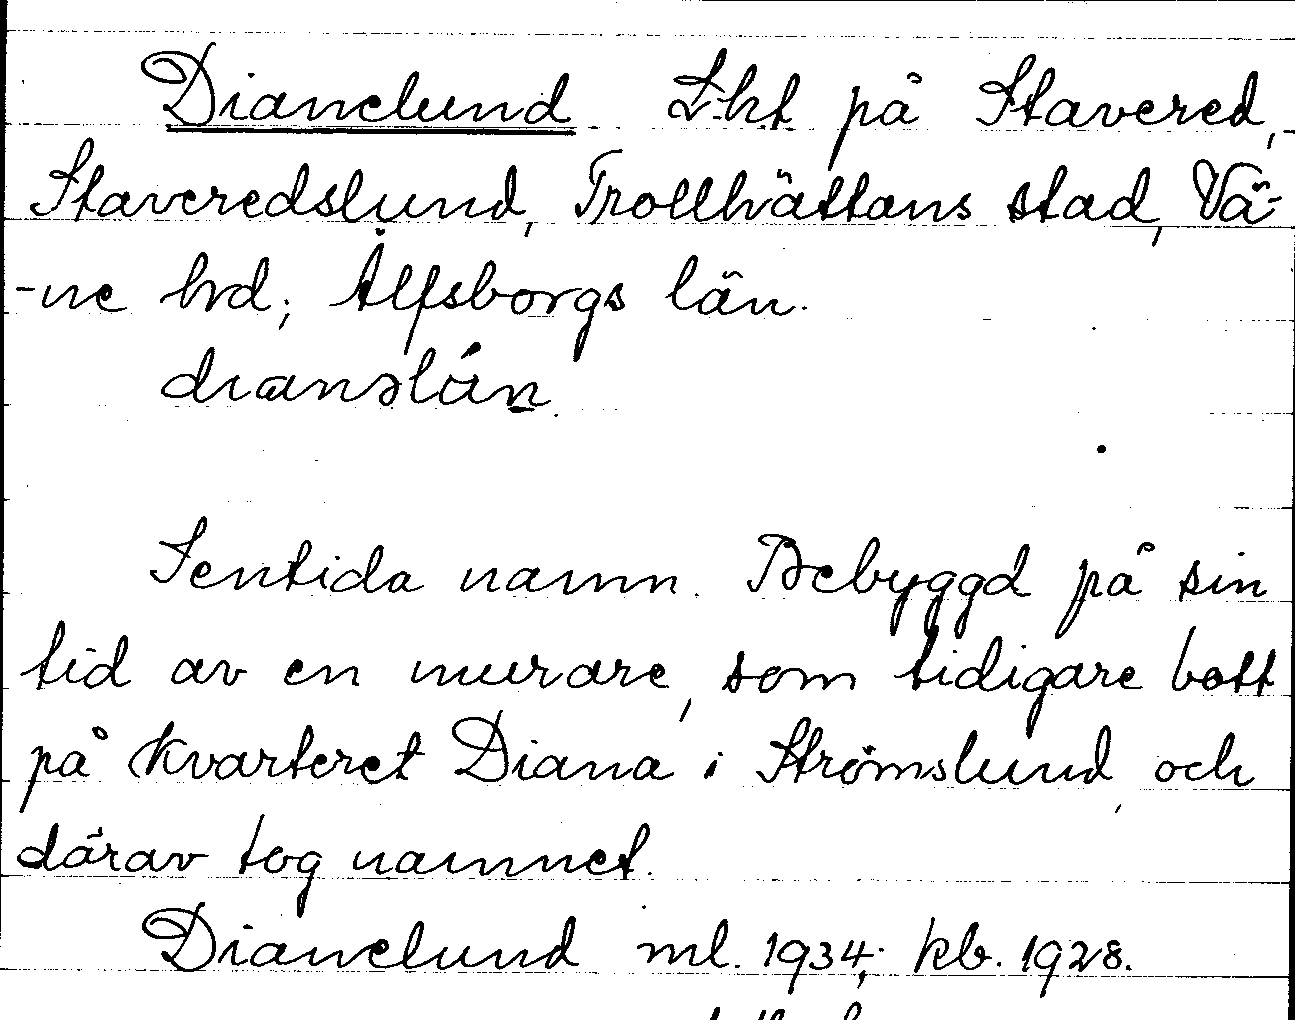 Dianelund Lht på Stavered,
Staveredslund, Trollhättans stad, Vä-
-ne hd; Älfsborgs län.
dıanəlún
Sentida namn. Bebyggd på sin
tid av en murare, som tidigare bott
på kvarteret Diana i Strömslund, och
därav tog namnet.
Dianelund ml. 1934; kb. 1928.